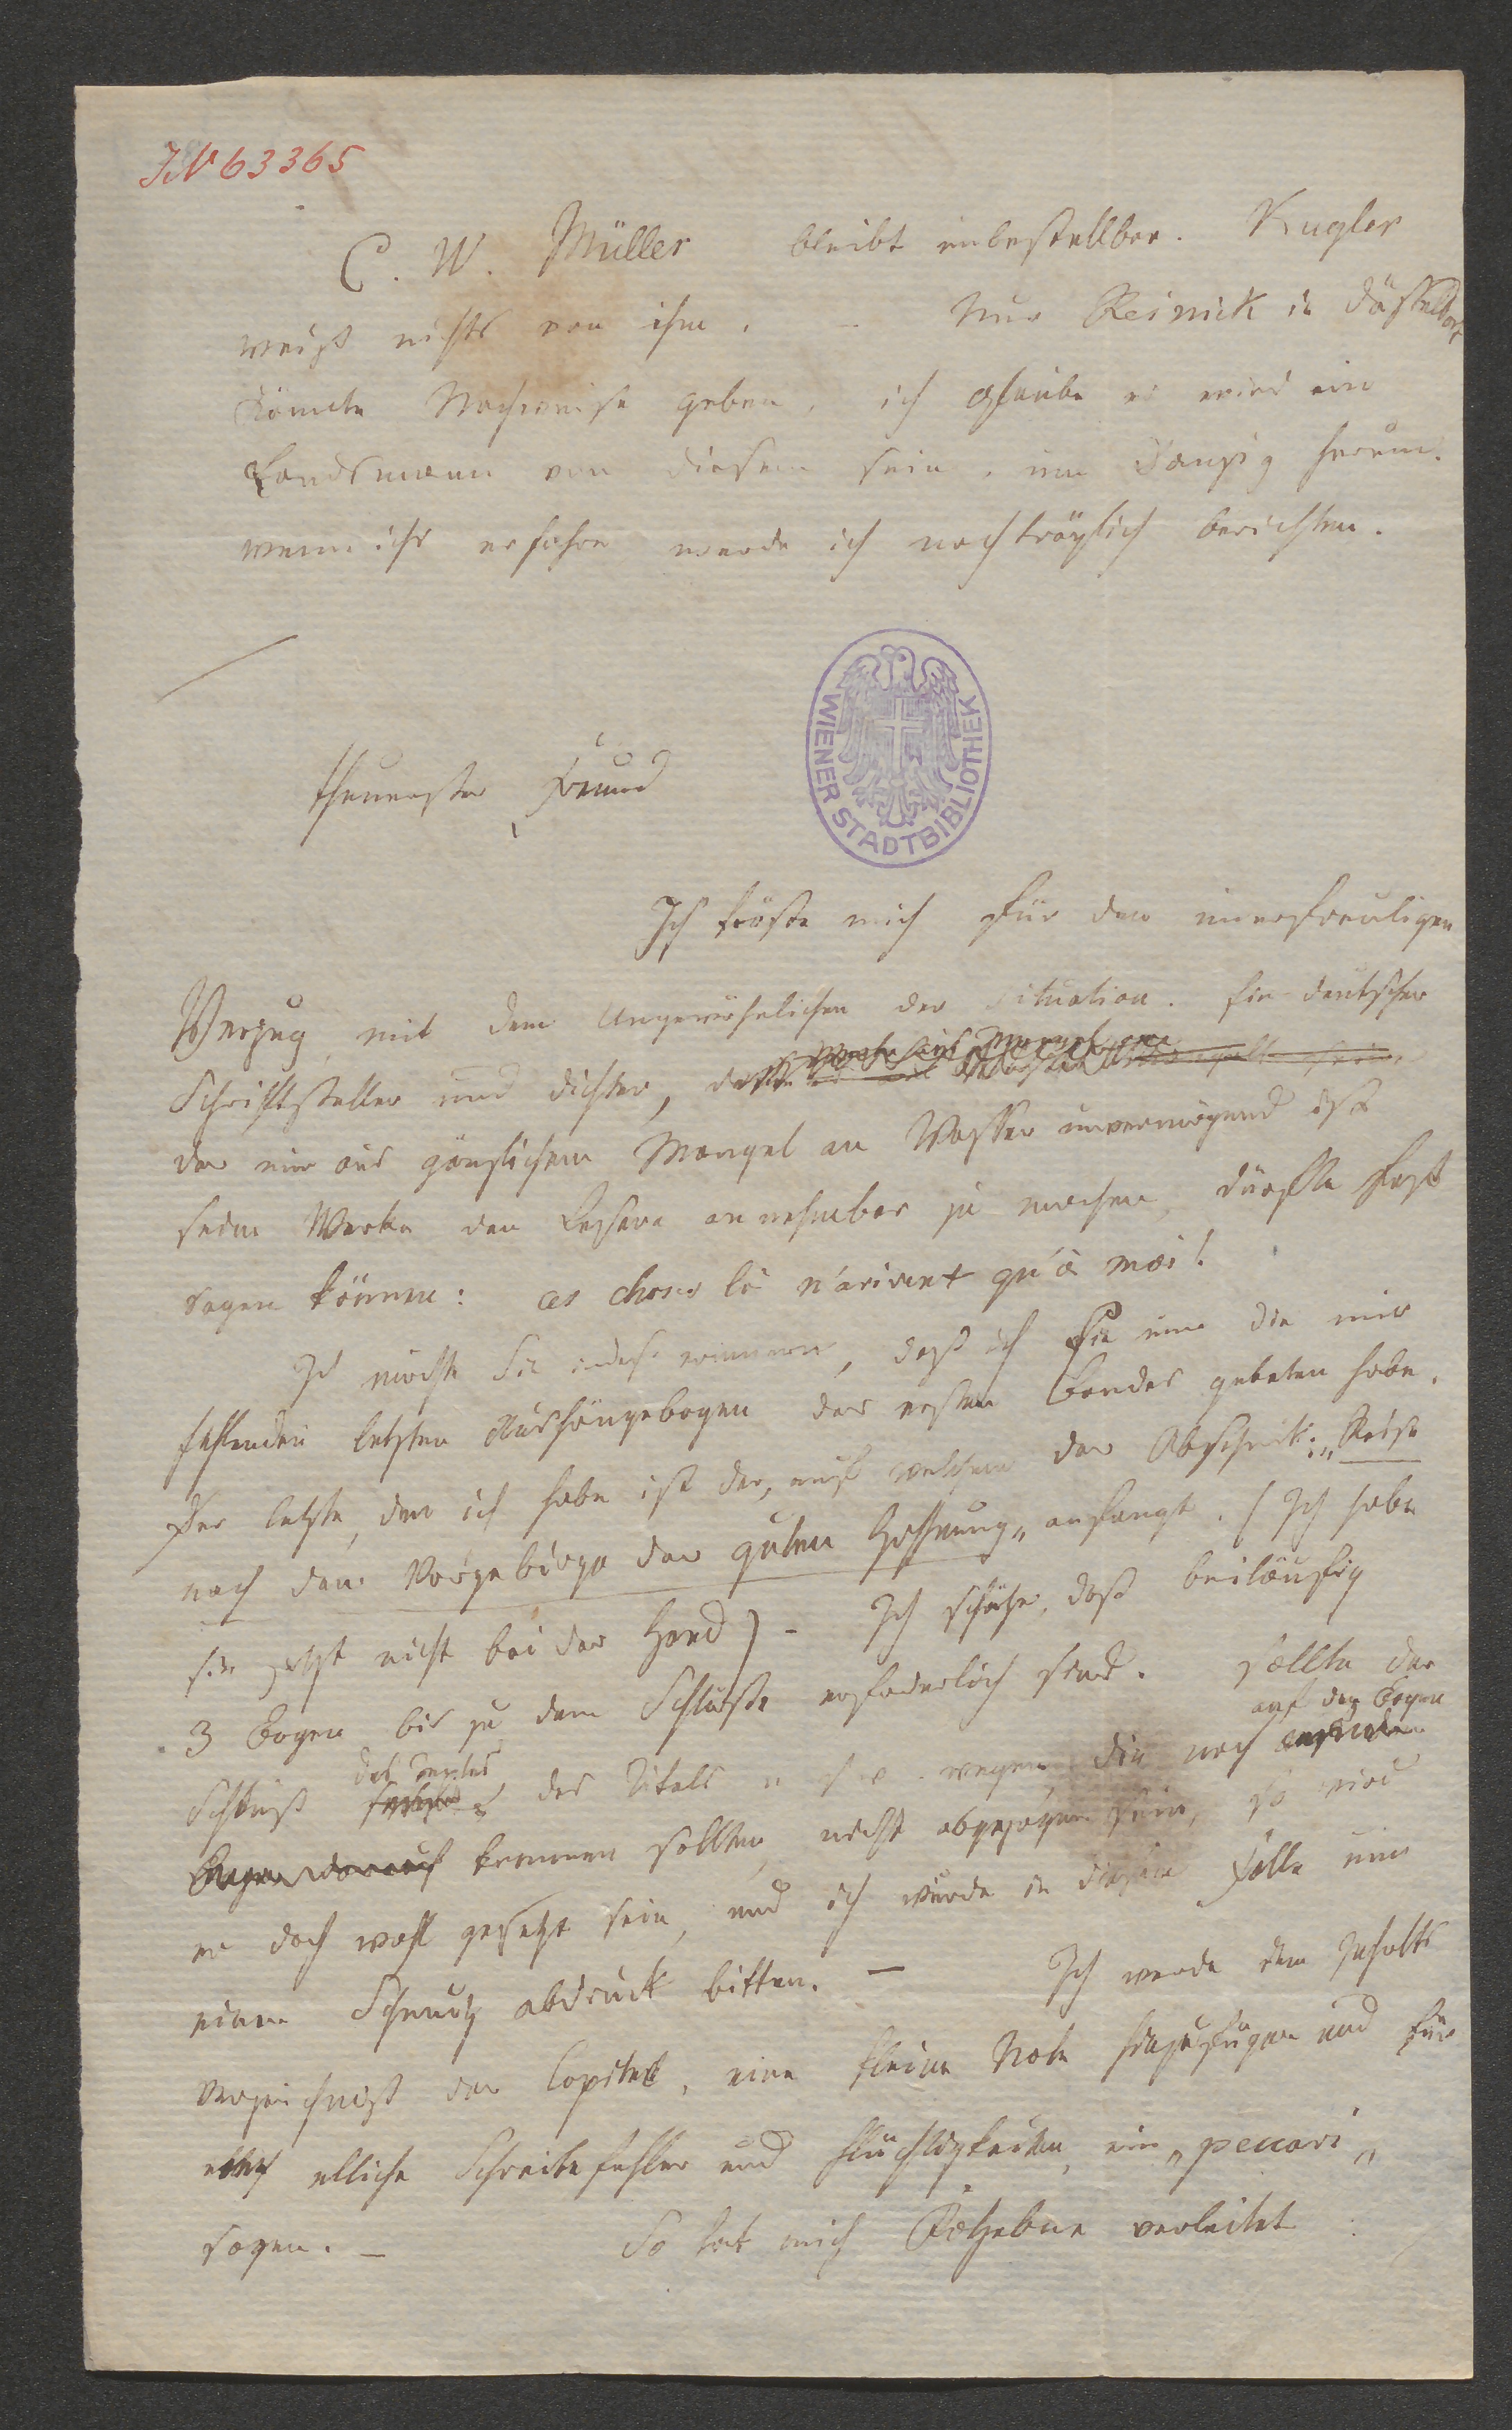 JN 63365
C. W. Müller bleibt unbestellbar. Kugler
weiß nichts von ihm. – Nur Reinick in Düsseldorf
könnte Nachweise geben, ich glaube es wird ein
Landsmann von diesem sein, um Danzig herum.
wenn ichs erfahre werde ich nachträglich berichten.
WIENER STADTBIBLIOTHEK
theuerster Freund
Ich tröste mich für den unerfreuligen
Verzug, mit dem Ungewöhnlichen der Situation. Ein deutscher
Schriftsteller und dichter,
der nur aus gänzlichem Mangel an Wasser unvermögend ist
seine Werke den Lesern annehmbar zu machen, dürfte fast
sagen können: ces choses là n'arivent qu'à moi!
Ich möchte Sie indeß erinnern, daß ich Sie um die mir
fehlenden letzten Aushängebogen des ersten Bandes gebeten habe.
Der letzte, den ich habe ist der, auf welchem der Abschnitt: „Reise
nach dem Vorgebirge der guten Hoffnung„ anfangt. (Ich habe
sie jetzt nicht bei der Hand) – Ich schätze, daß beiläufig
3 Bogen bis zu dem Schlusse erfoderlich sind. sollte der
auf den Bogen
des Textes
Schluß des Titels u s w. wegen, die noch
Bogen darauf kommen sollten, nicht abgezogen sein, so wird
er doch wohl gesetzt sein, und ich würde in diesem Falle um
einen Schmutz abdruck bitten. – Ich werde dem Inhalts
verzeichniß der Capitel, eine kleine Note hinzufügen und für
etliche Schreibefehler und Flüchtigkeiten, ein „peccavi„
sagen. – So hat mich Kotzebue verleitet